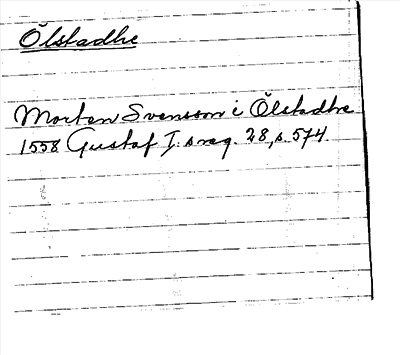 Ölstadhe
Morten Svensson i Ölstadhe
1558 Gustaf I. s reg. 28, s. 574.